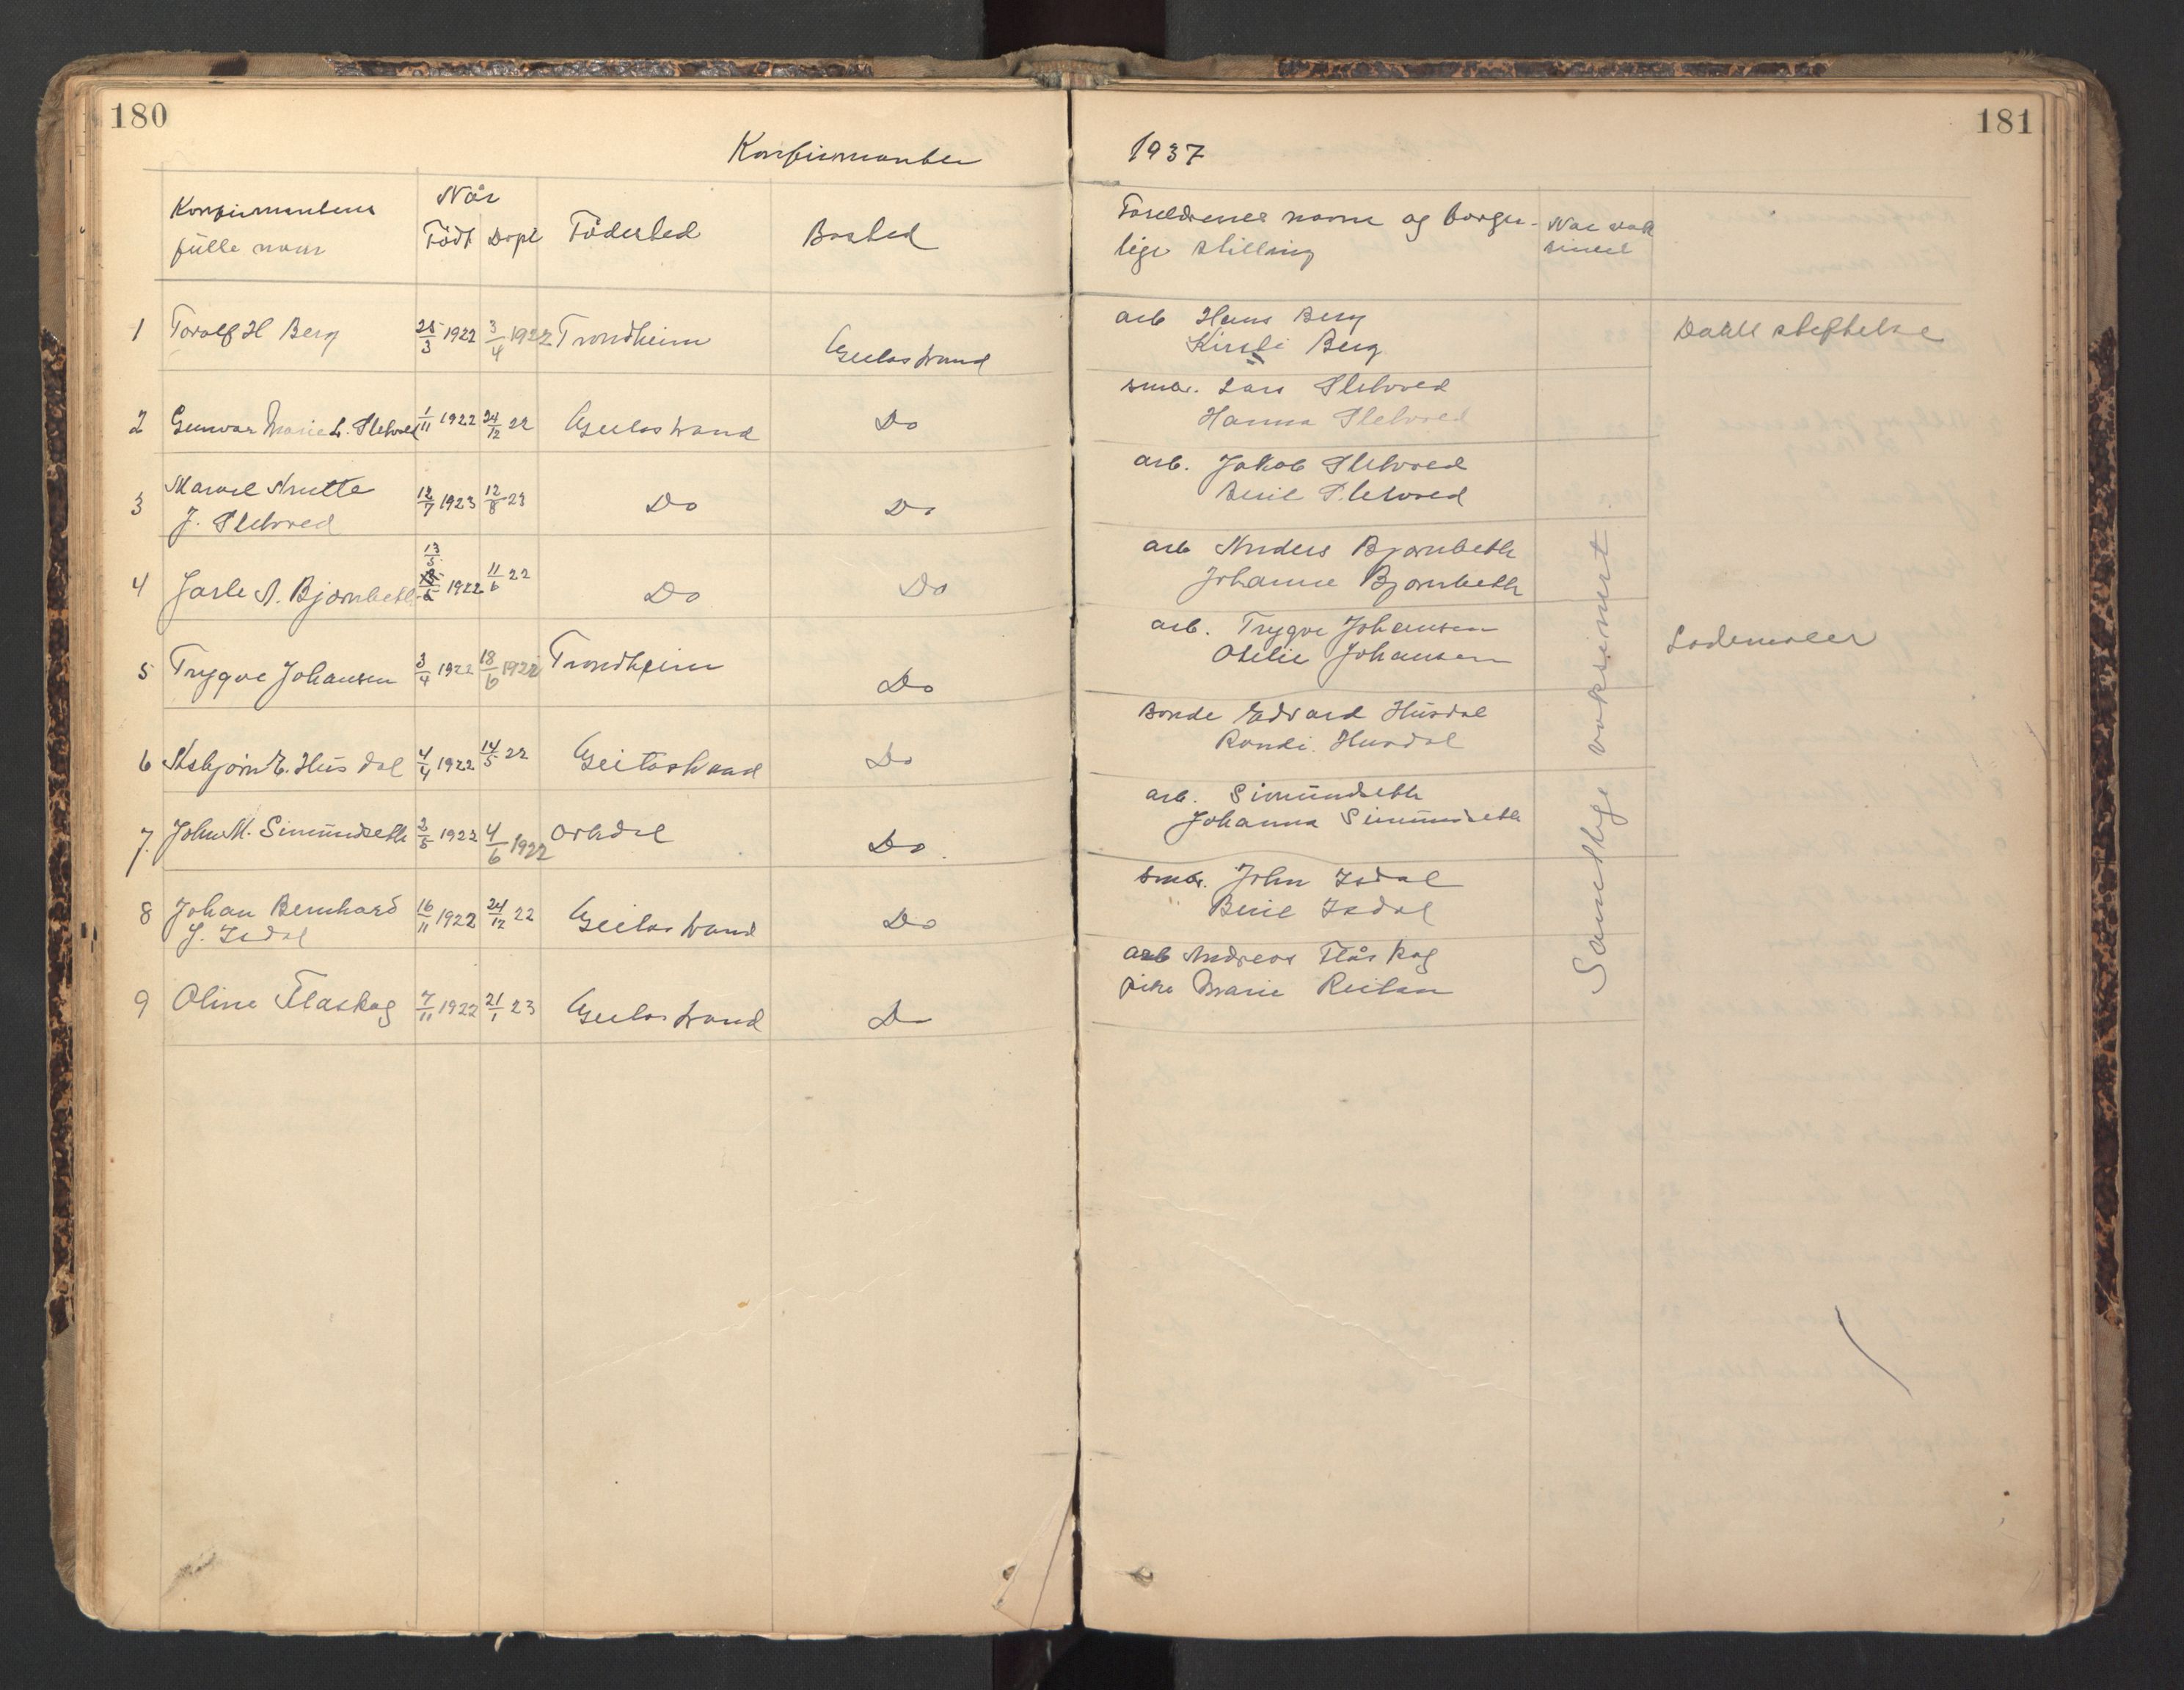 180
181
Konfirmanter
1937
Konfirmantens fulle navn
Når
Födt
Döpt
Födested
Bosted
Foreldrenes navn og borger-
lige stilling
Når vak
sinert
1 Toralf H Berg 25/3 1922 3/4 1922 Trondheim Geitastrand
arb Hans Berg
Kirsti Berg
Dahls stiftelse
2 Gunvor Marie L. Sletvold 1/11 1922 24/12 22 Geitastrand Do
små. Lars Sletvold
Hanna Sletvold
3 Marcel Anette
J. Sletvold 12/7 1923 12/8 23 Do Do
arb. Jakob Sletvold
Beril Sletvold
13/5
4 Jarle A. Bjørnbeth 1922 11/6 22 Do Do
arb Anders Bjørnbeth
Johanne Bjørnbeth
5 Trygve Johansen 3/4 1922 18/6 1922 Trondheim Do
arb. Trygve Johansen
Otelie Johansen
Lademoen
6 Asbjørn E. Husdal 4/4 1922 14/5 22 Geitastrand Do
Bonde Edvard Husdal
Randi Husdal
7. John M. Simundseth 2/5 1922 4/6 1922 Orkdal Do.
arb. Simundseth
Johanna Simundseth
8 Johan Bernhard
J. Isdal 16/11 1922 24/12 22 Geitastrand Do
små. John Isdal
" Beril Isdal
9 Oline Flaskog 7/11 1922 21/1 23 Geitastrand Do
arb Andreas Flåskog
pike Marie Reitan
Samtlige vaksinert